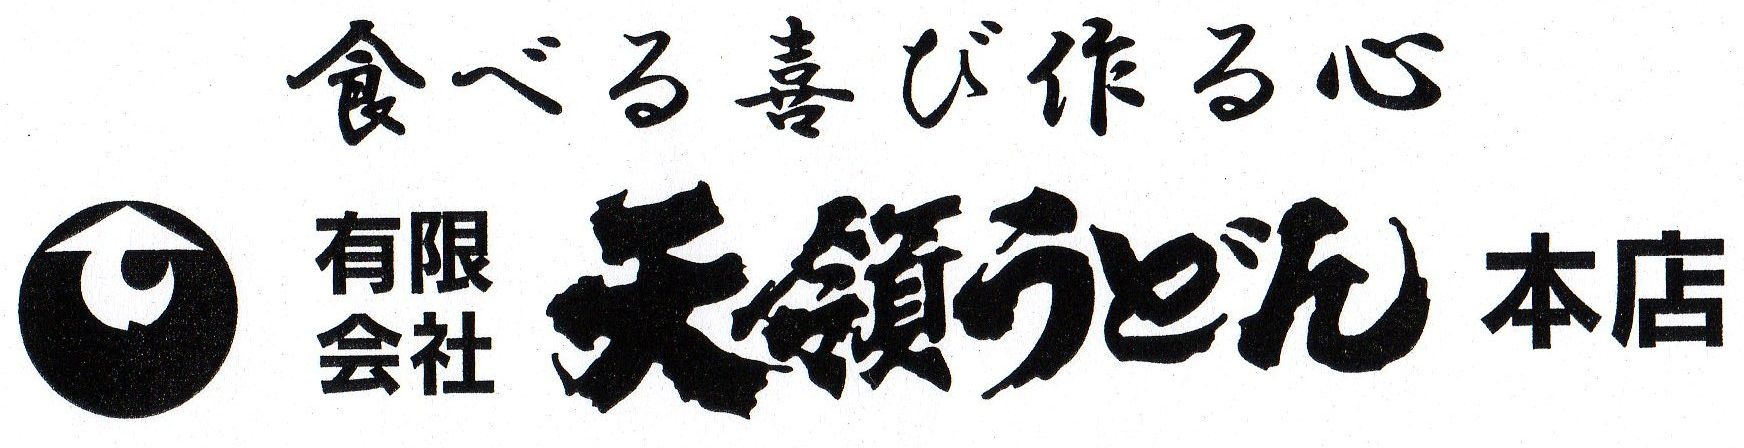 食べる喜び作る心
有限会社 天領うどん 本店